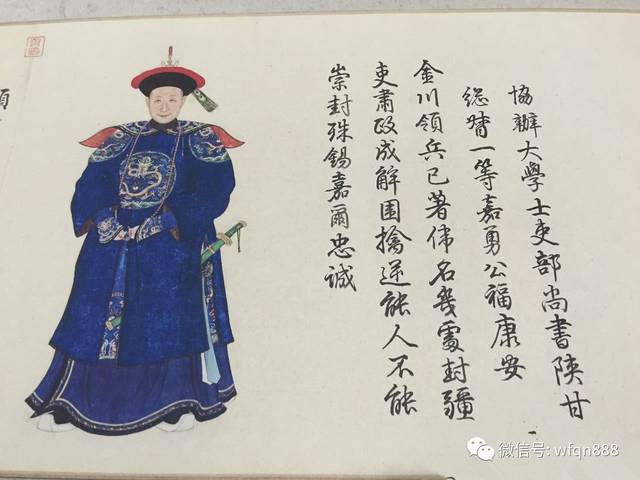 協辦大學士吏部尚書陝甘
總督一等嘉勇公福康安
金川領兵已著偉名幾處封疆
吏肅政成解圍擒逆能人不能
崇封殊錫嘉爾忠誠
微信号: wfqn888